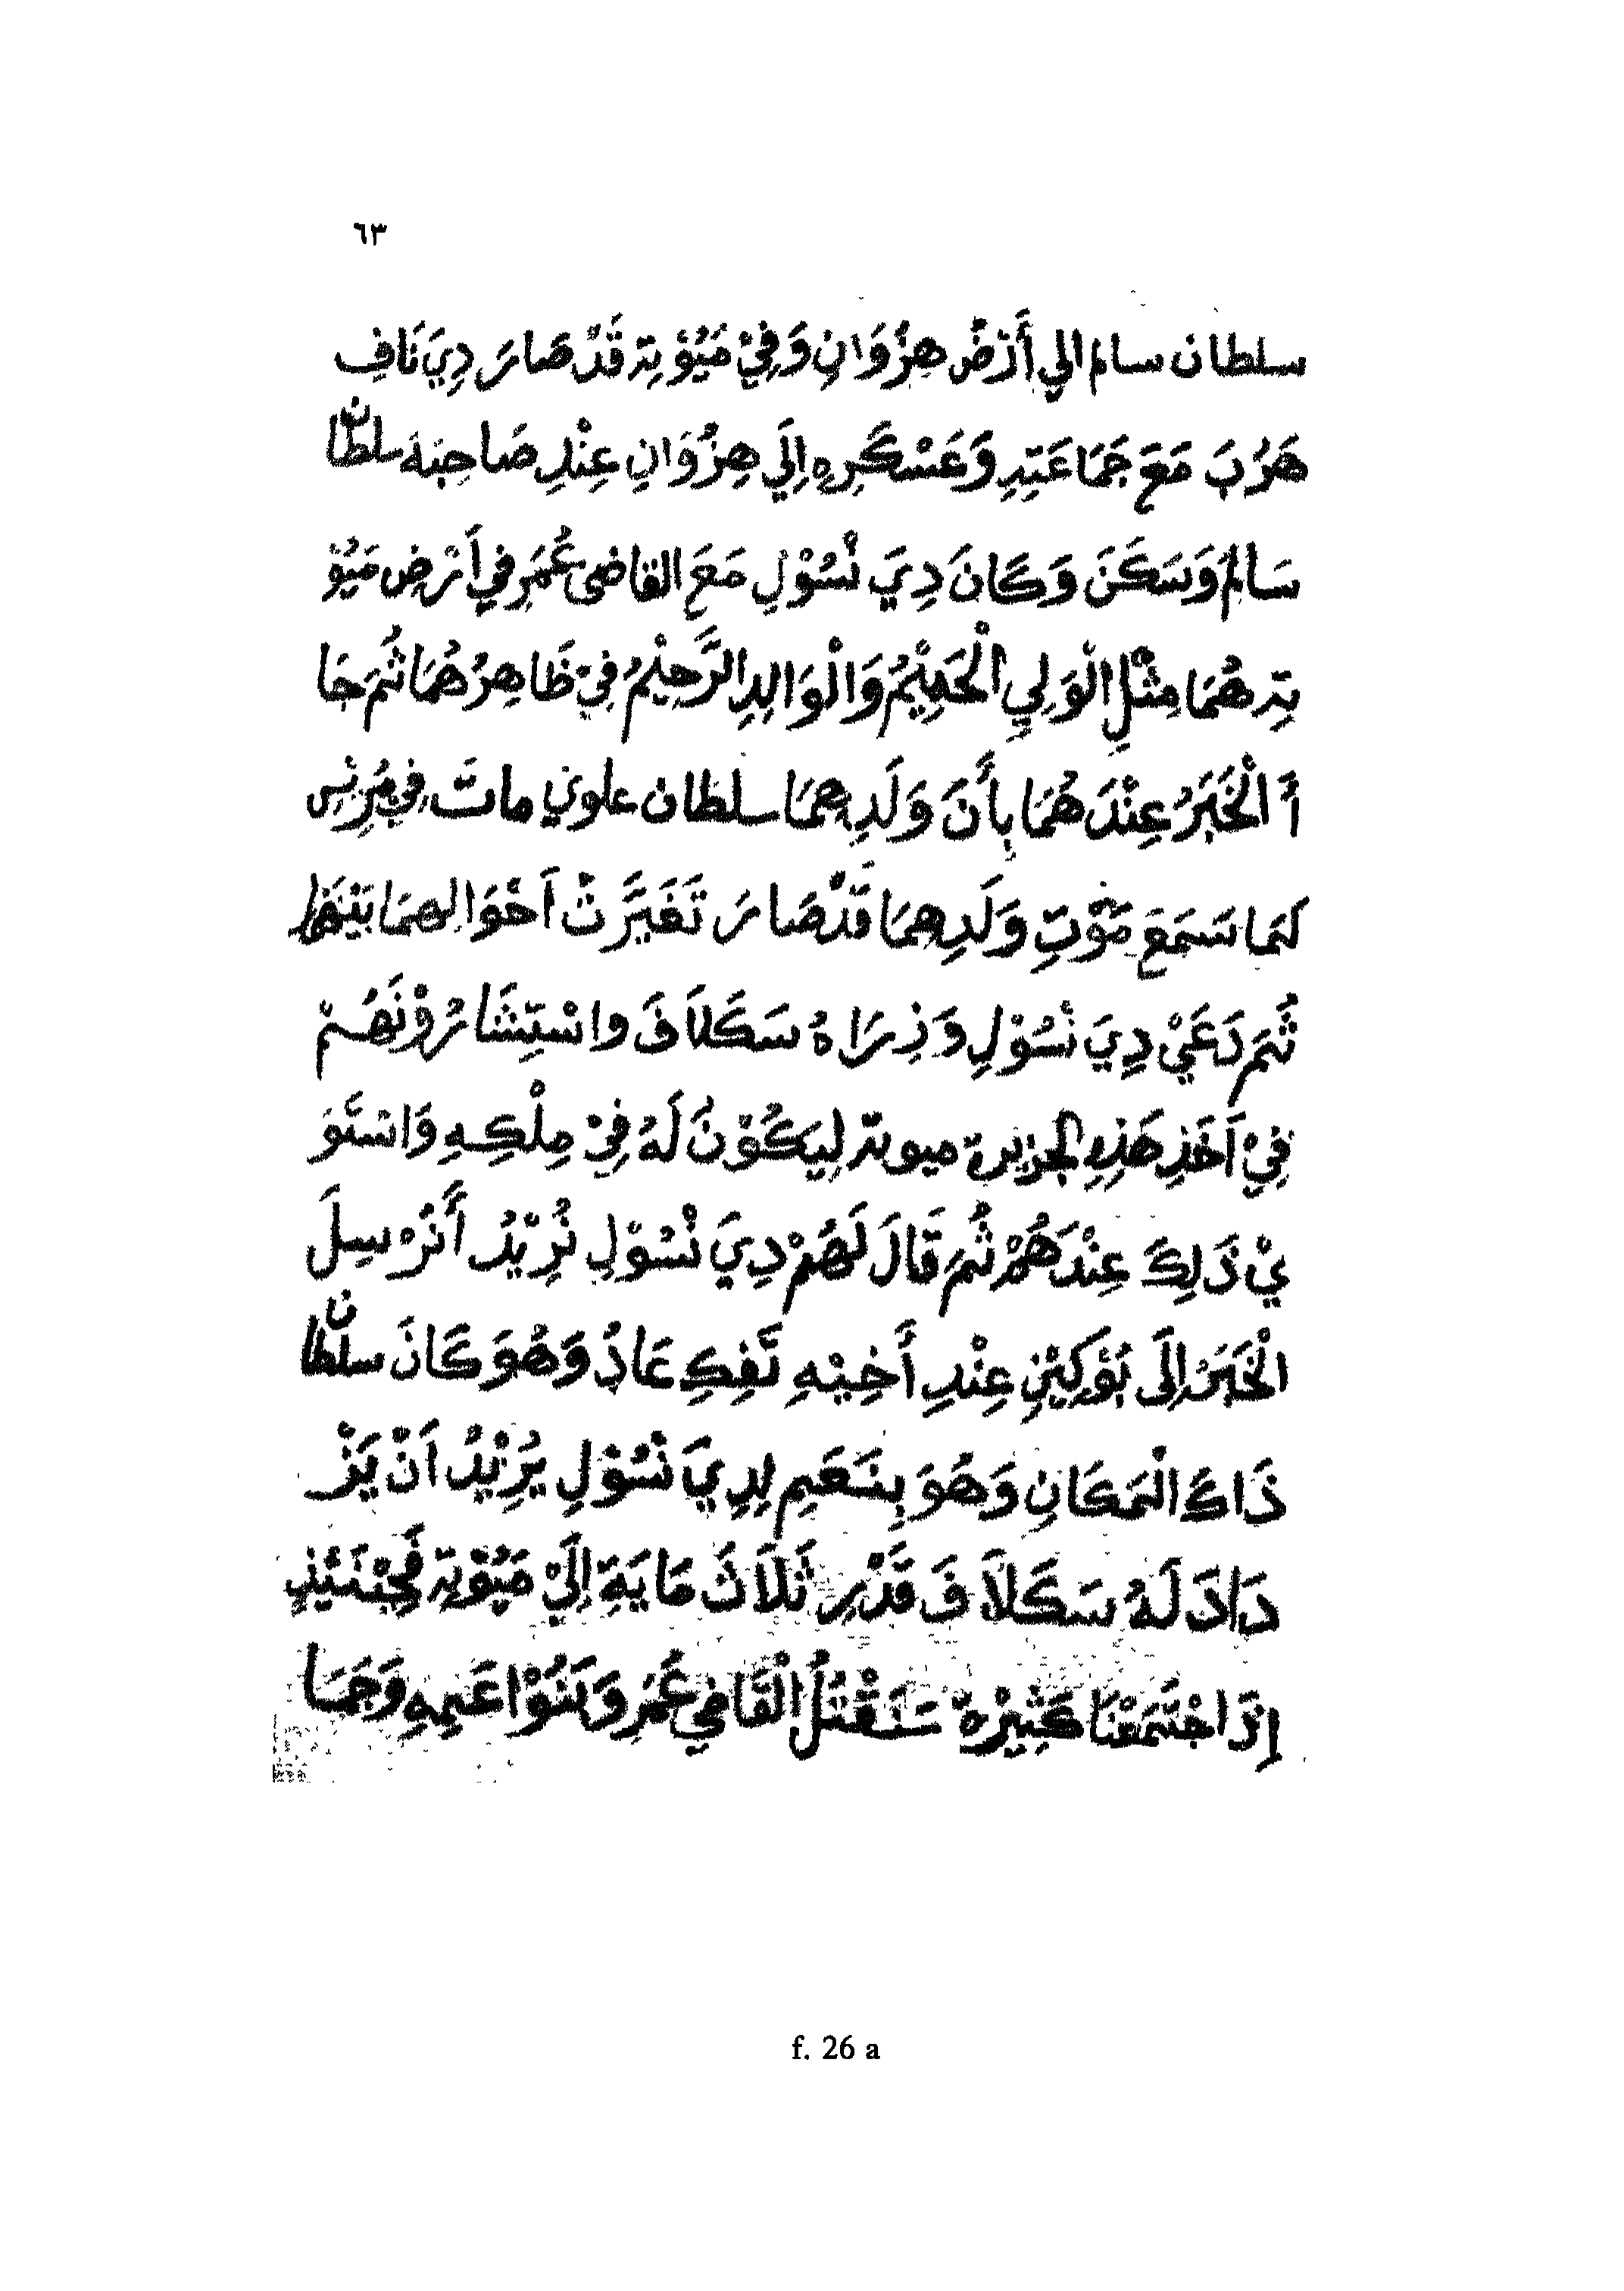 ٦٣
سلطان سالم الي أَرْضْ هِزُوَانِ وَفِيْ مَيُوْتِة قَدْ صَارَ دِيَ نَافِ
هَرُبَ مَعَ جَمَاعَتِدِ وَعَسْكَرِهِ اِلَي هِزُوَانِ عِنْدِ صَاحِبَهَ سلطان
سَالمُ وَسَكَنَ وَكَانَ دِيَ نْسُوْلِ مَعَ القاضى عُمَرِ في اَرْضِ مَيُوْ
تِة هُمَا مِثْلِ الْوَلِي الْحَمِيْمُ وَالْوَالِدِ الرَّحِيْمُ فِيْ ظَاهِرُهُمَا ثُمَ جَا
أَ الْخَبَرُ عِنْدَ هُمَا بِأَنَ وَلَدِهِمَا سلطان علوي ماتَ فِي مُرِنِسِ
لَمَا سَمَعَ مَوْتِ وَلَدِهِمَا قَدْصَارَ تَغَيَّرَتْ اَحْوَالهمَا بَيْنَهُمَا
ثُمَ دَعَيْ دِيَ نْسُوْلِ وَذِرَاهُ سَكَلَافَ واسْتِشَارُوْنَهُمْ
فِيْ اَخَذِ هَذِهِ الجزيرة ميوتة لِيَكُوْنُ لَهُ فِيْ مِلْكِهِ وَاسْتَوَ
يْ ذَلِكَ عِنْدَهُمْ ثُمَ قَالَ لَهُمْ دِيَ نْسُوْلِ نُرِيْدُ أَنُرْسِلَ
الْخَبَرُ اِلَى بُوَكِيْنِ عِنْدِ أَخِيْهِ نَفِكِ عَادُ وَهُوَ كَانَ سلطان
ذَاكَ الْمَكَانِ وَهُوَ بِنَعَمِ لِدِيَ نْسُوْلِ يُرِيْدُ اَنْ يَزْ
دَادَ لَهُ سَكَلَافَ قَدْرِ ثَلَاثَ مَايَةِ اِلَيْ مَيُوْتِة فَحِيْنَئِذٍ
اِذَا جْتَمَعْنَا كَثِيْرَةْ سَنَقْتُلُ الْقَاضِي عُمَرُ وَبَنُوْا عَمِهِ وَجَمَا
f. 26 a